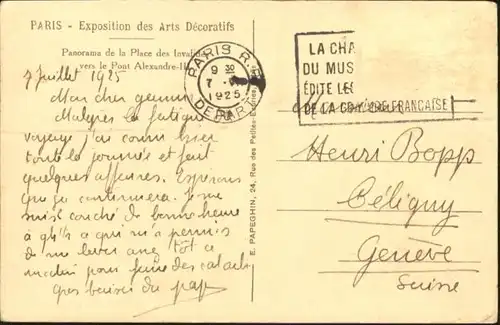 PARIS - Exposition des Arts Décoratifs
Panorama de la Place des Invalides
vers le Pont Alexandre-III
PARIS R.
9 30
7
1925
DEPART
LA CHA
DU MUS
ÉDITE LE
DE LA GRAVURE FRANÇAISE
7 Juillet 1925
Mon cher gamin
Malgré la fatigue
voyage j'ai couru hier
toute la journée et fait
quelques affaires. Espérons
que ça continuera. Je me
suis couché de bonne heure
à 9h½ ce qui m'a permis
de me lever assez tôt ce
matin pour faire des
gros baisers du papa
E. PAPEGHIN, 24, Rue des Petites-Écuries
Henri Bopp
Céligny
Genève
Suisse